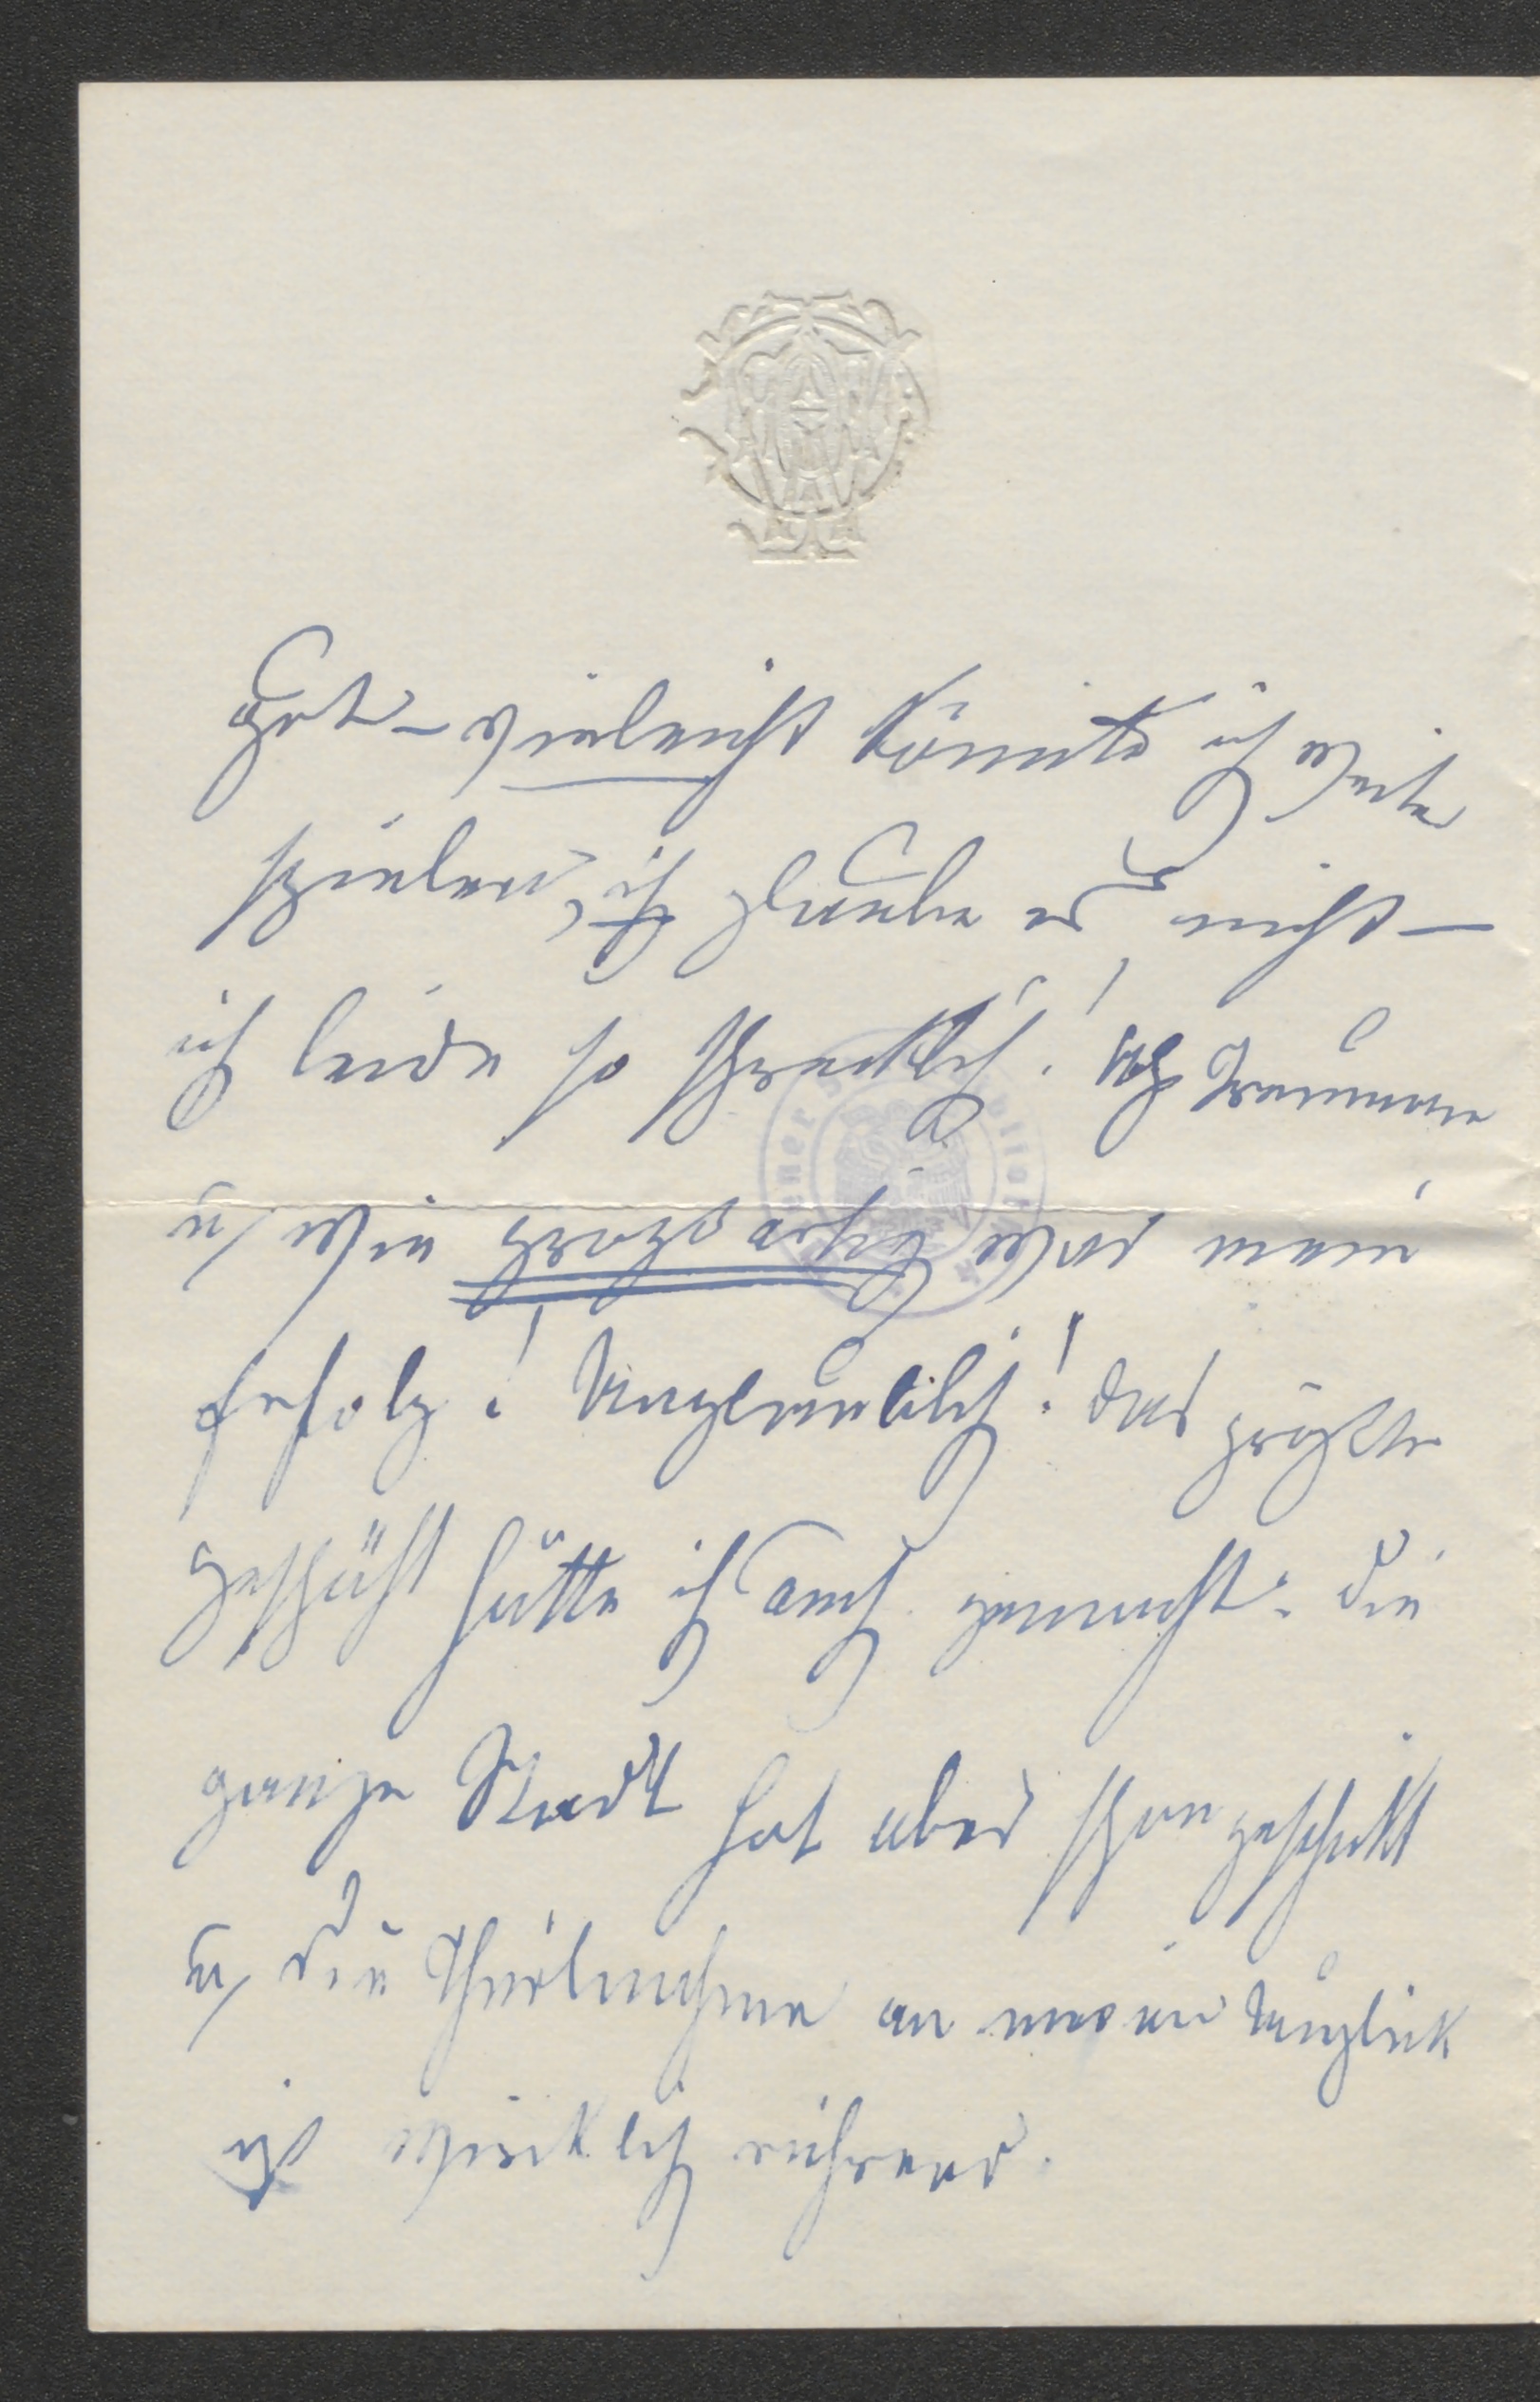 gut – vielleicht könnte ich weiter
spielen, ich glaube es nicht –
ich leide so schrecklich!
u, wie großartig war mein
Erfolg! Unglaublich! das größte
Geschäft hätte ich auch gemacht: die
ganze Stadt hat aber schon geschickt
u, die Theilnahme an meinem Unglück
ist wirklich rührend.